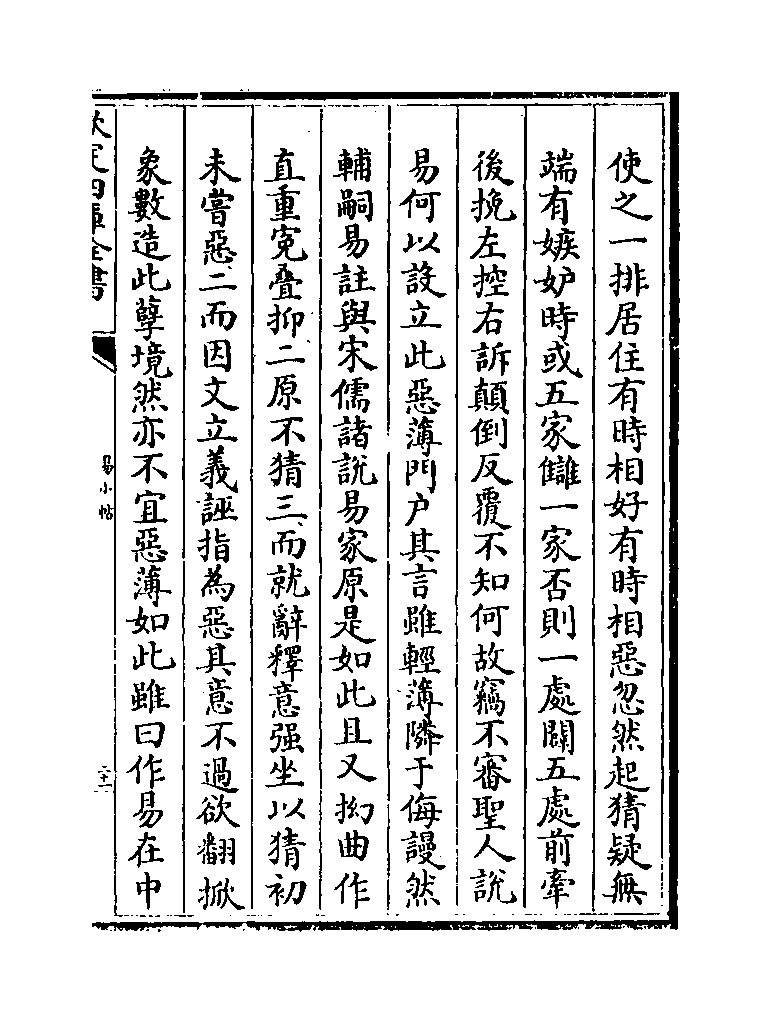 使之一排居住有時相好有時相惡忽然起猜疑無
端有嫉妒時或五家讎一家否則一處鬭五處前牽
後挽左控右訴顛倒反覆不知何故竊不審聖人說
易何以設立此惡薄門户其言雖輕薄隣于侮謾然
輔嗣易註與宋儒諸說易家原是如此且又拗曲作
直重寃疊抑二原不猜三而就辭釋意强坐以猜初
未嘗惡二而因文立義誣指為惡其意不過欲翻掀
象數造此孽境然亦不宜惡薄如此雖曰作易在中
欽定四庫全書
易小帖
二十二